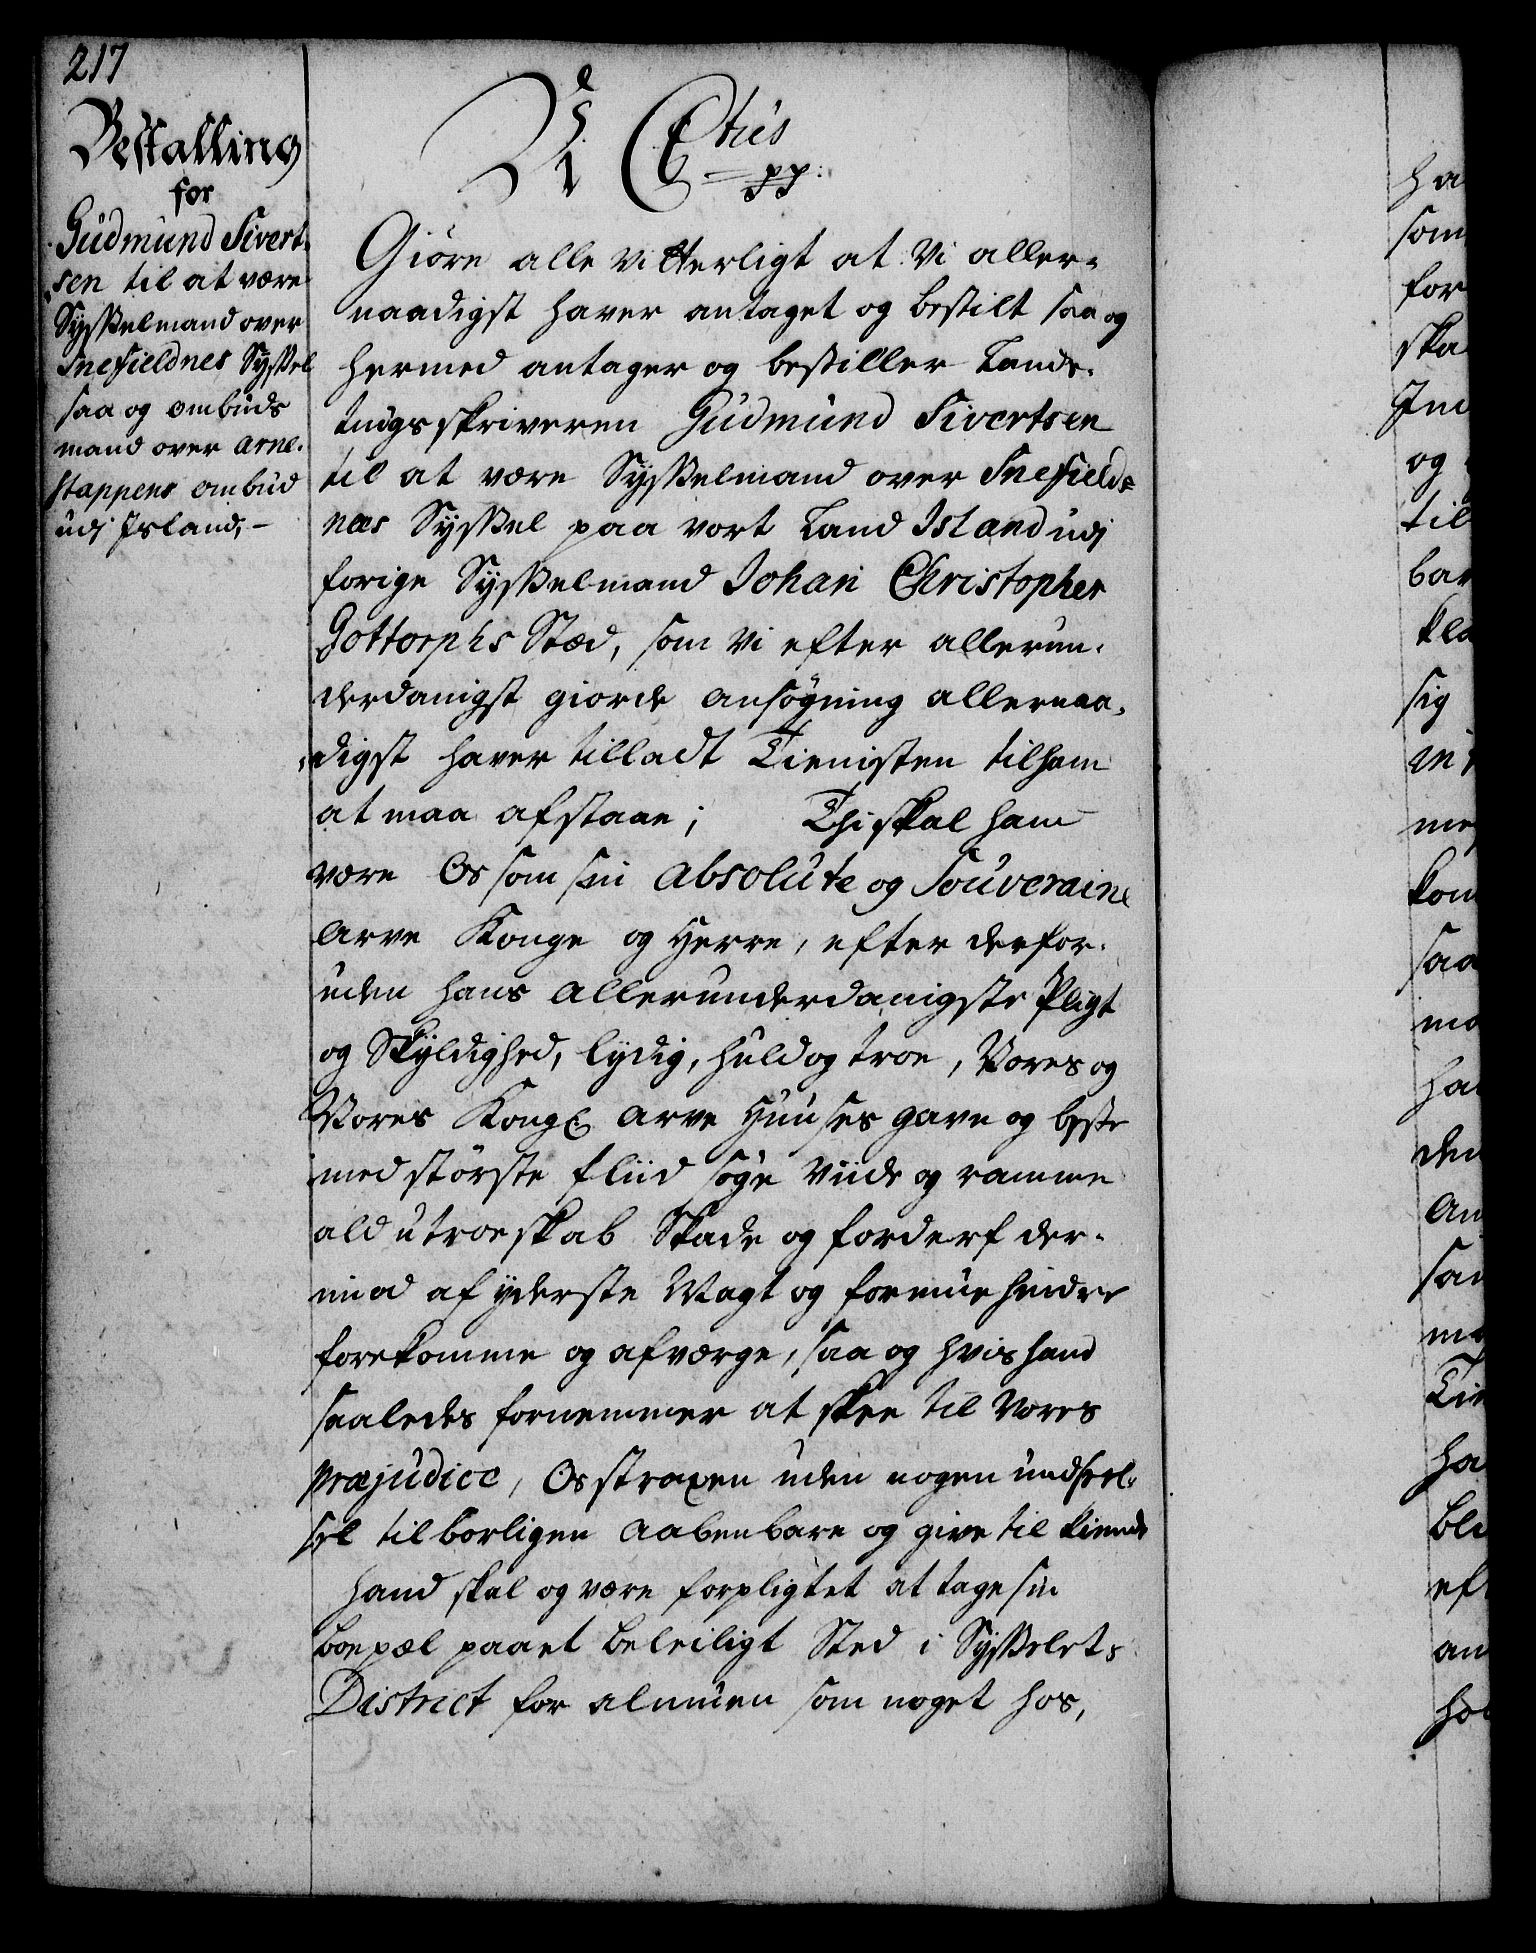 217
Bestalling
for
Gudmund Sivert-
sen til at være
Sysselmand over
Snefieldnes Syssel
saa og ombuds
mand over Arne-
stappens ombud
udj Island, -
Vi Ctus
pp:
Giöre alle vitterligt at Vi aller-
naadigst haver antaget og bestilt saa og
hermed antager og bestiller Lands-
tingsskriveren Gudmund Sivertsen
til at være Sysselmand over Snefield-
næs Syssel paa vort Land Island udj
forige Sysselmand Johan Christopher
Gottorphs Stæd, som Vi efter allerun-
derdanigst giorde ansögning allernaa-
digst haver tilladt Tienisten til ham
at maa afstaae; Thi skal hand
være Os som sin Absolute og Souveraine
Arve Konge og Herre, efter derfor-
uden hans allerunderdanigste Pligt
og Skyldighed, lydig, huld og troe, Vores og
Vores Kongl. Arve Huuses gavn og beste
med störste fliid söge Viide og ramme
ald utroeskab Skade og forderf der-
imod af yderste Magt og formue hindre
forekomme og afværge, saa og hvis hand
saaledes fornemmer at skee til Vores
Præjudice, Os straxen uden nogen undseel-
sel tilbörligen Aabenbare og give tilkiende
Hand skal og være forpligtet at tage sin
boepæl paa et beleiligt Sted i Sysselets
District for almuen som noget hos,
ha
som
for
ska
Ind
og
til
bar
kla
sig
kom
saa
ma
ha
den
An
sam
Tie
ha
ble
eft
an